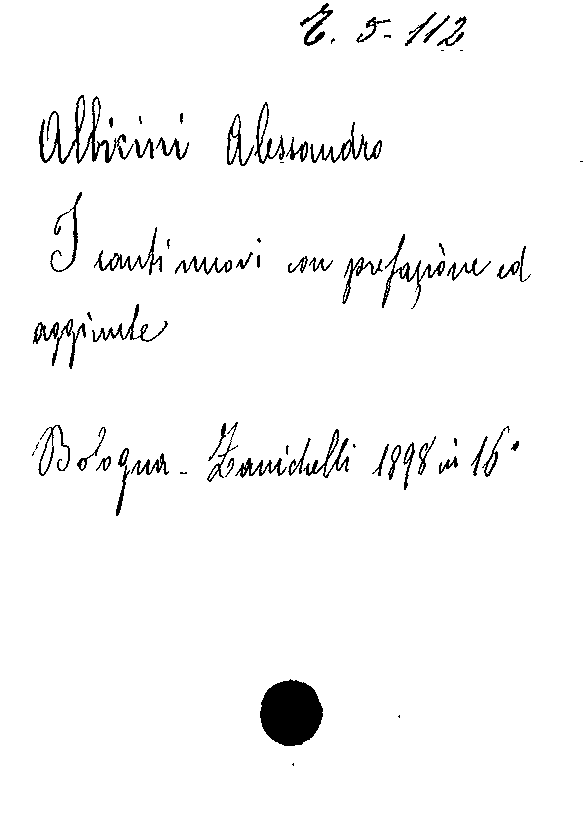 E. 5-112
Albicini Alessandro
I canti nuovi con prefazione ed
aggiunte
Bologna - Zanichelli 1898 in 16°